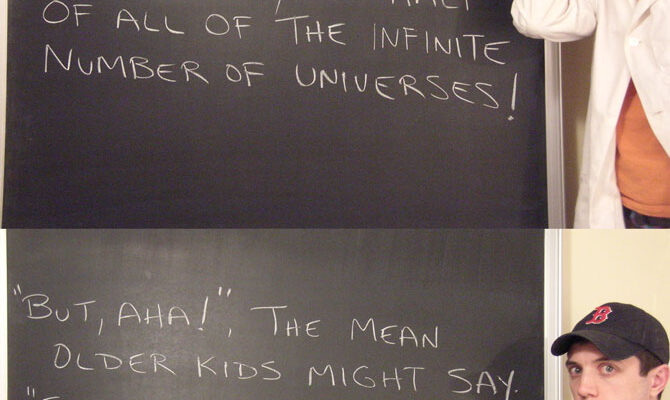 HALF
OF ALL OF THE INFINITE
NUMBER OF UNIVERSES!
"BUT, AHA!", THE MEAN
OLDER KIDS MIGHT SAY.
B